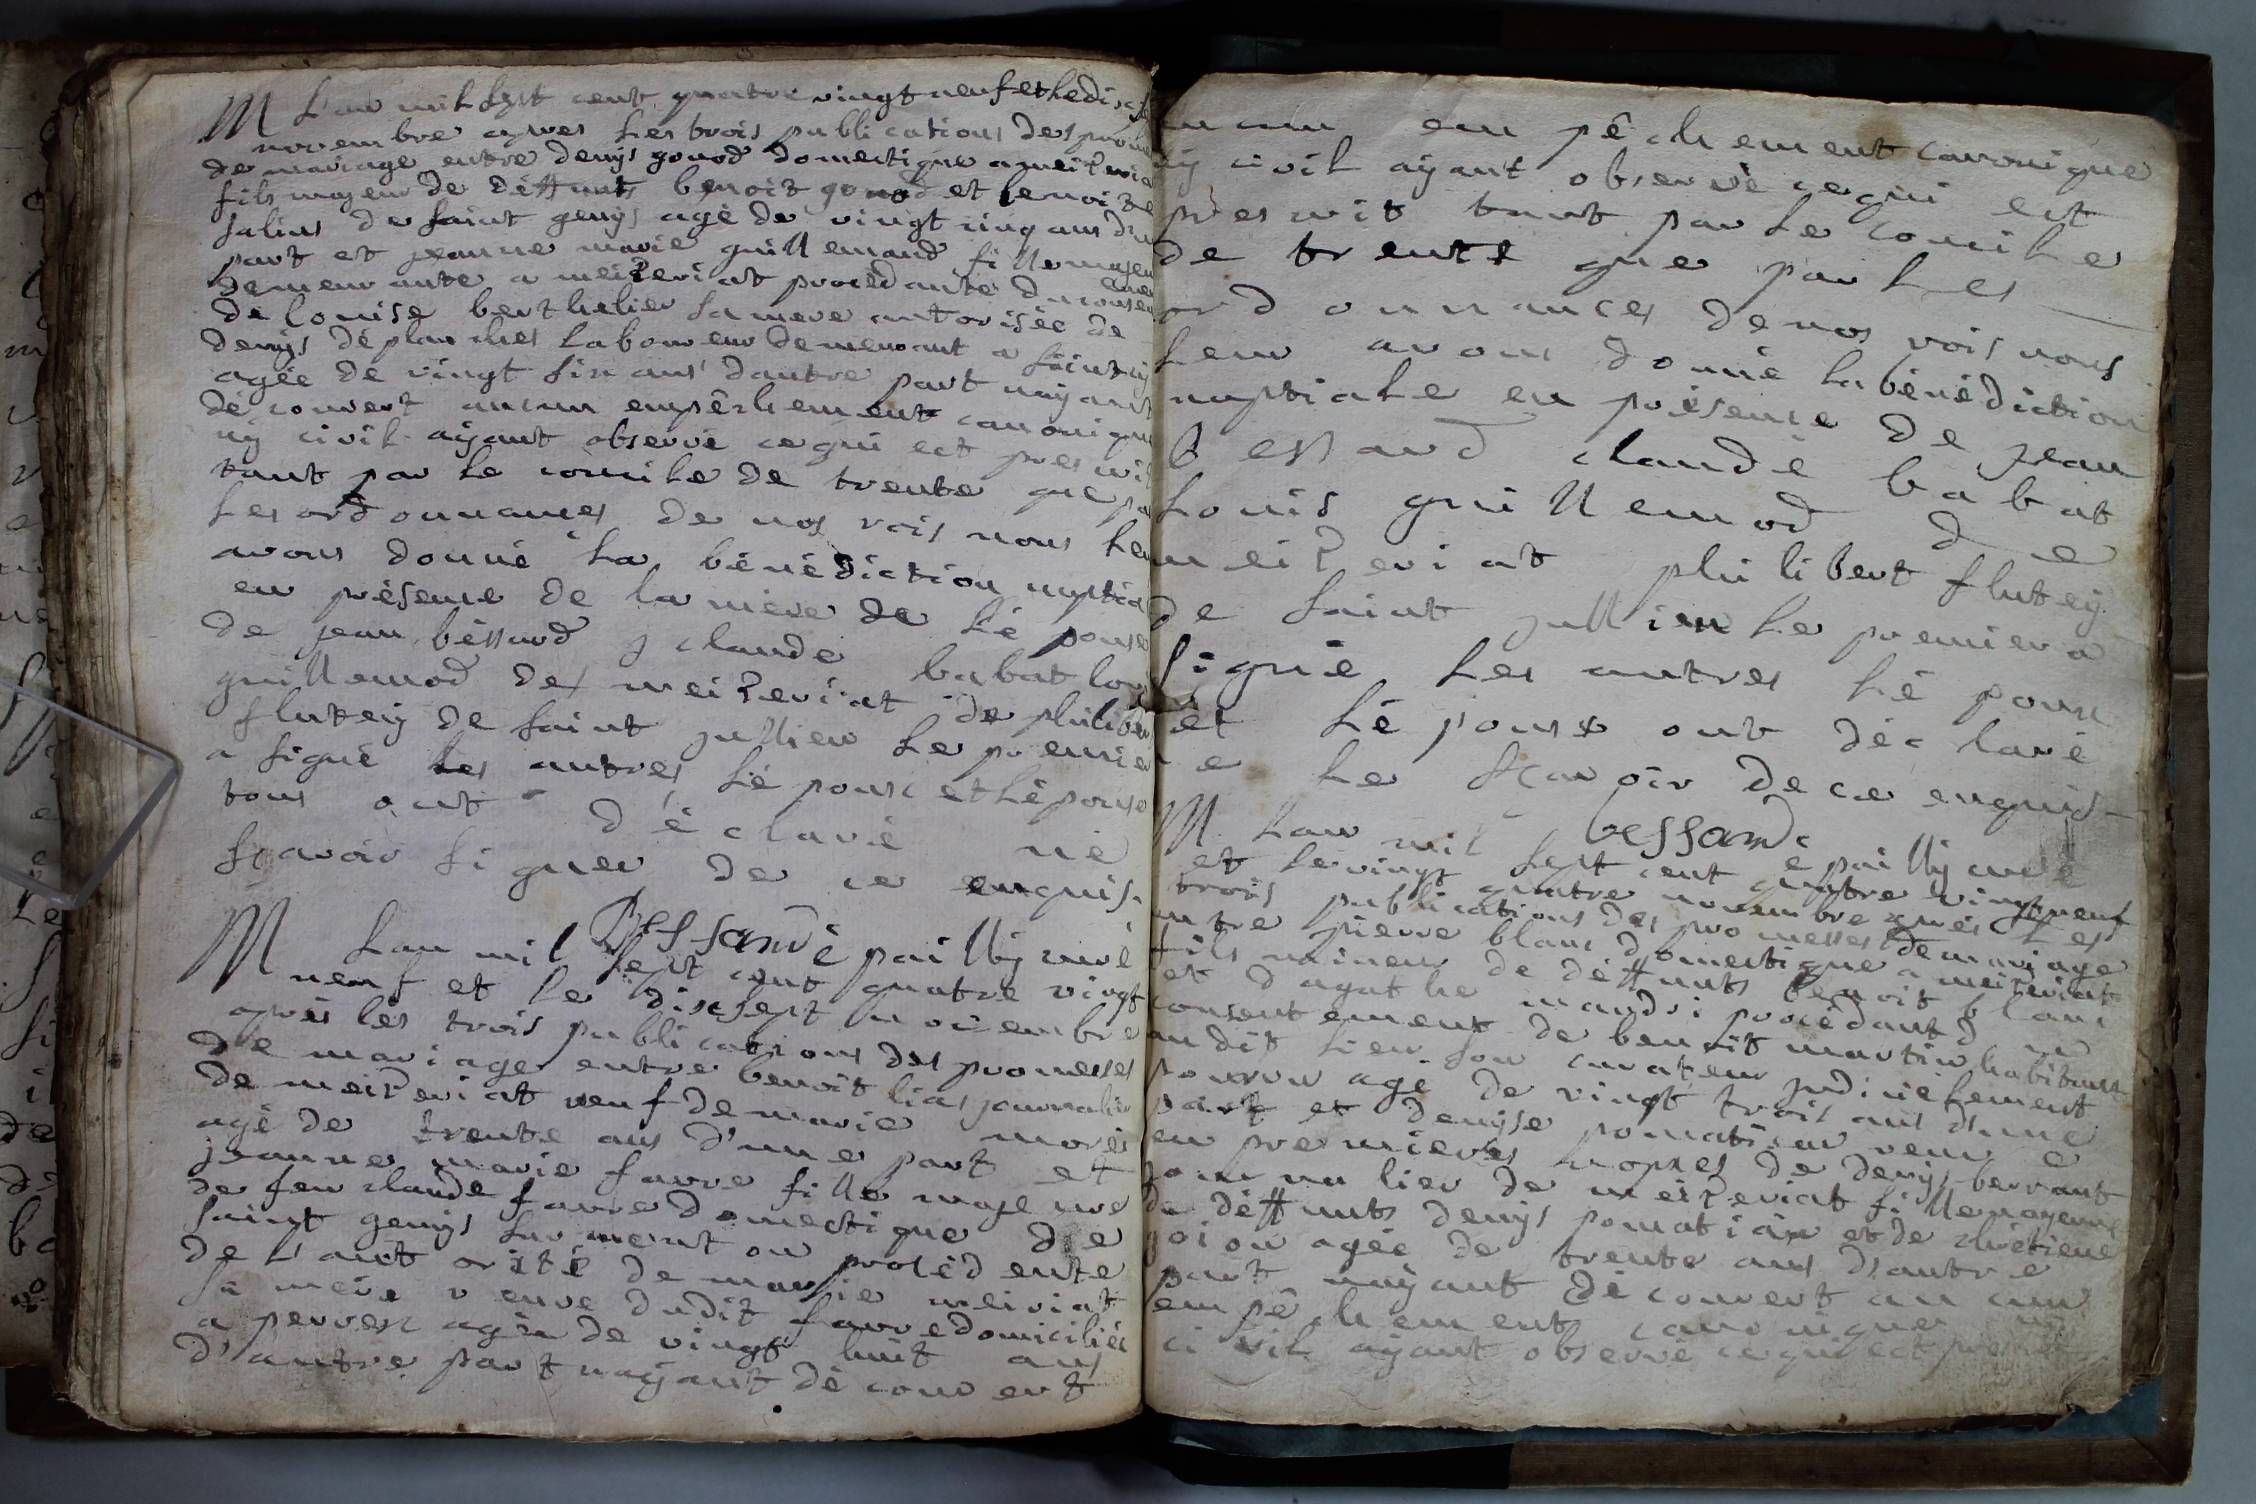 M L'an mil sept cent quatre vingt neuf et le dix sept
novembre apres les trois publications des promes
de mariage entre denÿs gonod domestique a meizeria
fils majeur de déffunts benoit gonod et benoite
salins de saint genÿs agé de vingt cinq ans d'un
part et jeanne marie guillemaud fille majeu
demeurante a meizeriat procédante du consen
de louise berthelier sa mere autorisée de
denÿs déplanches laboureur demeurant a
agée de vingt six ans d'autre part naÿant
découvert aucun empêchement canonique
nÿ civil aÿant observé ce qui est prescrit
tant par le concile de trente que pa
les ordonnances de nos rois nous leu
avons donné la bénédiction nuptia
en présence de la mère de lépouse
de jean béssard claude babat lou
guillemod de meizeriat de philiber
flutéÿ de saint jullien le premier
a signé les autres lé poux et lé pouse
tous ont déclaré né
scavoir signer de ce enquis.
Bessard é paillÿ curé
M Lan mil sept cent quatre vingt
neuf et le dixsept novembre
aprés les trois publications des promesses
de mariage entre benoit lias journalier
de meizeriat veuf de marie morés
agé de trente ans d'une part et
jeanne marie favre fille majeure
de feu claude favre domestique de
saint genÿs sur menton procédente
de l'autorité de marie meiriat
sa mére veuve dudit favre domiciliée
a perrex agée de vingt huit ans
d'autre part naÿant découvert
aucun empêchement canonique
nÿ civil aÿant observé ce qui est
prescrit tant par le concile
de trente que par les
ordonnances de nos rois nous
leur avons donné la bénédiction
nuptiale en présence de jean
bessard claude babat
louis guillemod de
meizeriat philibert flutéÿ
de saint jullien le premier a
signé les autres lé poux
et lépouse ont déclaré
ne le scavoir de ce enquis
bessard é paillÿ curé
M. Lan mil sept cent quatre vingt neuf
et le vingt quatre novembre aprés les
trois publications des promesses de mariage
entre pierre blanc domestique a meizeriat
fils mineur de déffunts benoit blanc
et dagathe mandri procédant du
consentement de benoit martin habitant
audit lieu son curateur judiciélement
pourvu agé de vingt trois ans d'une
part et denÿse pomatiau veuve
en premieres nopces de denÿs berrant
journalier de meizeriat fille majeure
de déffunts denÿs pomatiau et de chrétiene
goion agée de trente ans d'autre
part naÿant découvert aucun
empêchement canonique nÿ
civil aÿant observé ce qui est prescrit